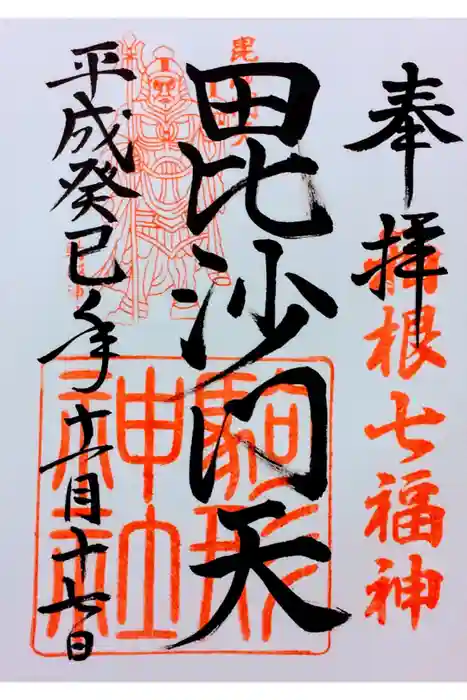 奉拝
箱根七福神
毘沙門天
毘沙門天
駒形
神社
平成癸巳年十一月十七日